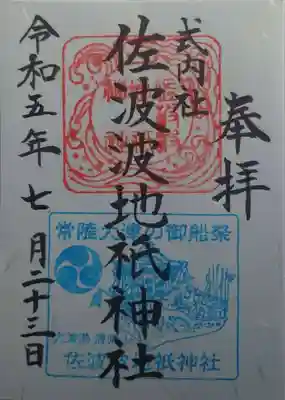 奉拝
式内社
佐波波地祇神社
令和五年七月二十三日
常陸大津の御船祭
佐波波地祇神社